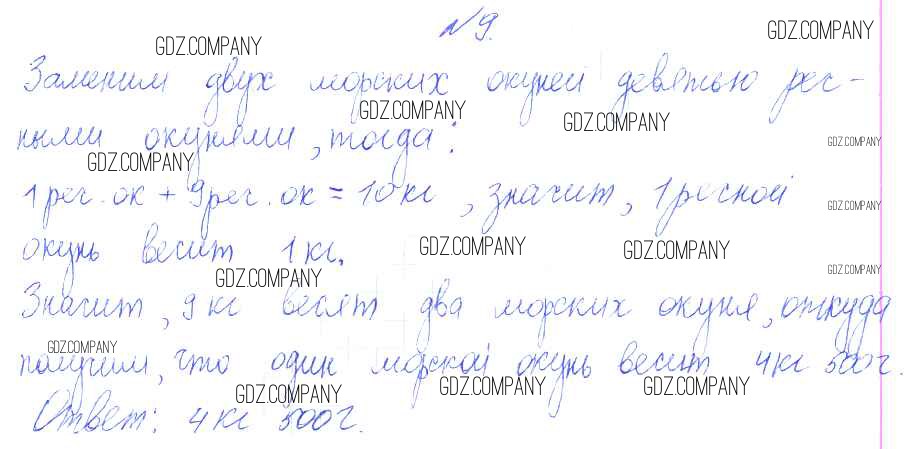 №9.
GDZ.COMPANY GDZ.COMPANY
Заменим двух морских окуней девятью реч-
GDZ.COMPANY GDZ.COMPANY
ными окунями, тогда:
GDZ.COMPANY GDZ.COMPANY
1 реч. ок + 9 реч. ок = 10 кг, значит, 1 речной
GDZ.COMPANY
окунь весит 1 кг.
GDZ.COMPANY GDZ.COMPANY
GDZ.COMPANY GDZ.COMPANY
Значит, 9 кг весят два морских окуня, откуда
GDZ.COMPANY
получим, что один морской окунь весит 4 кг 500 г.
GDZ.COMPANY GDZ.COMPANY GDZ.COMPANY
Ответ: 4 кг 500 г.